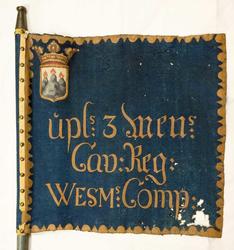 upls: 3 Mens:
Cav: Reg:
WESMs: Comp: